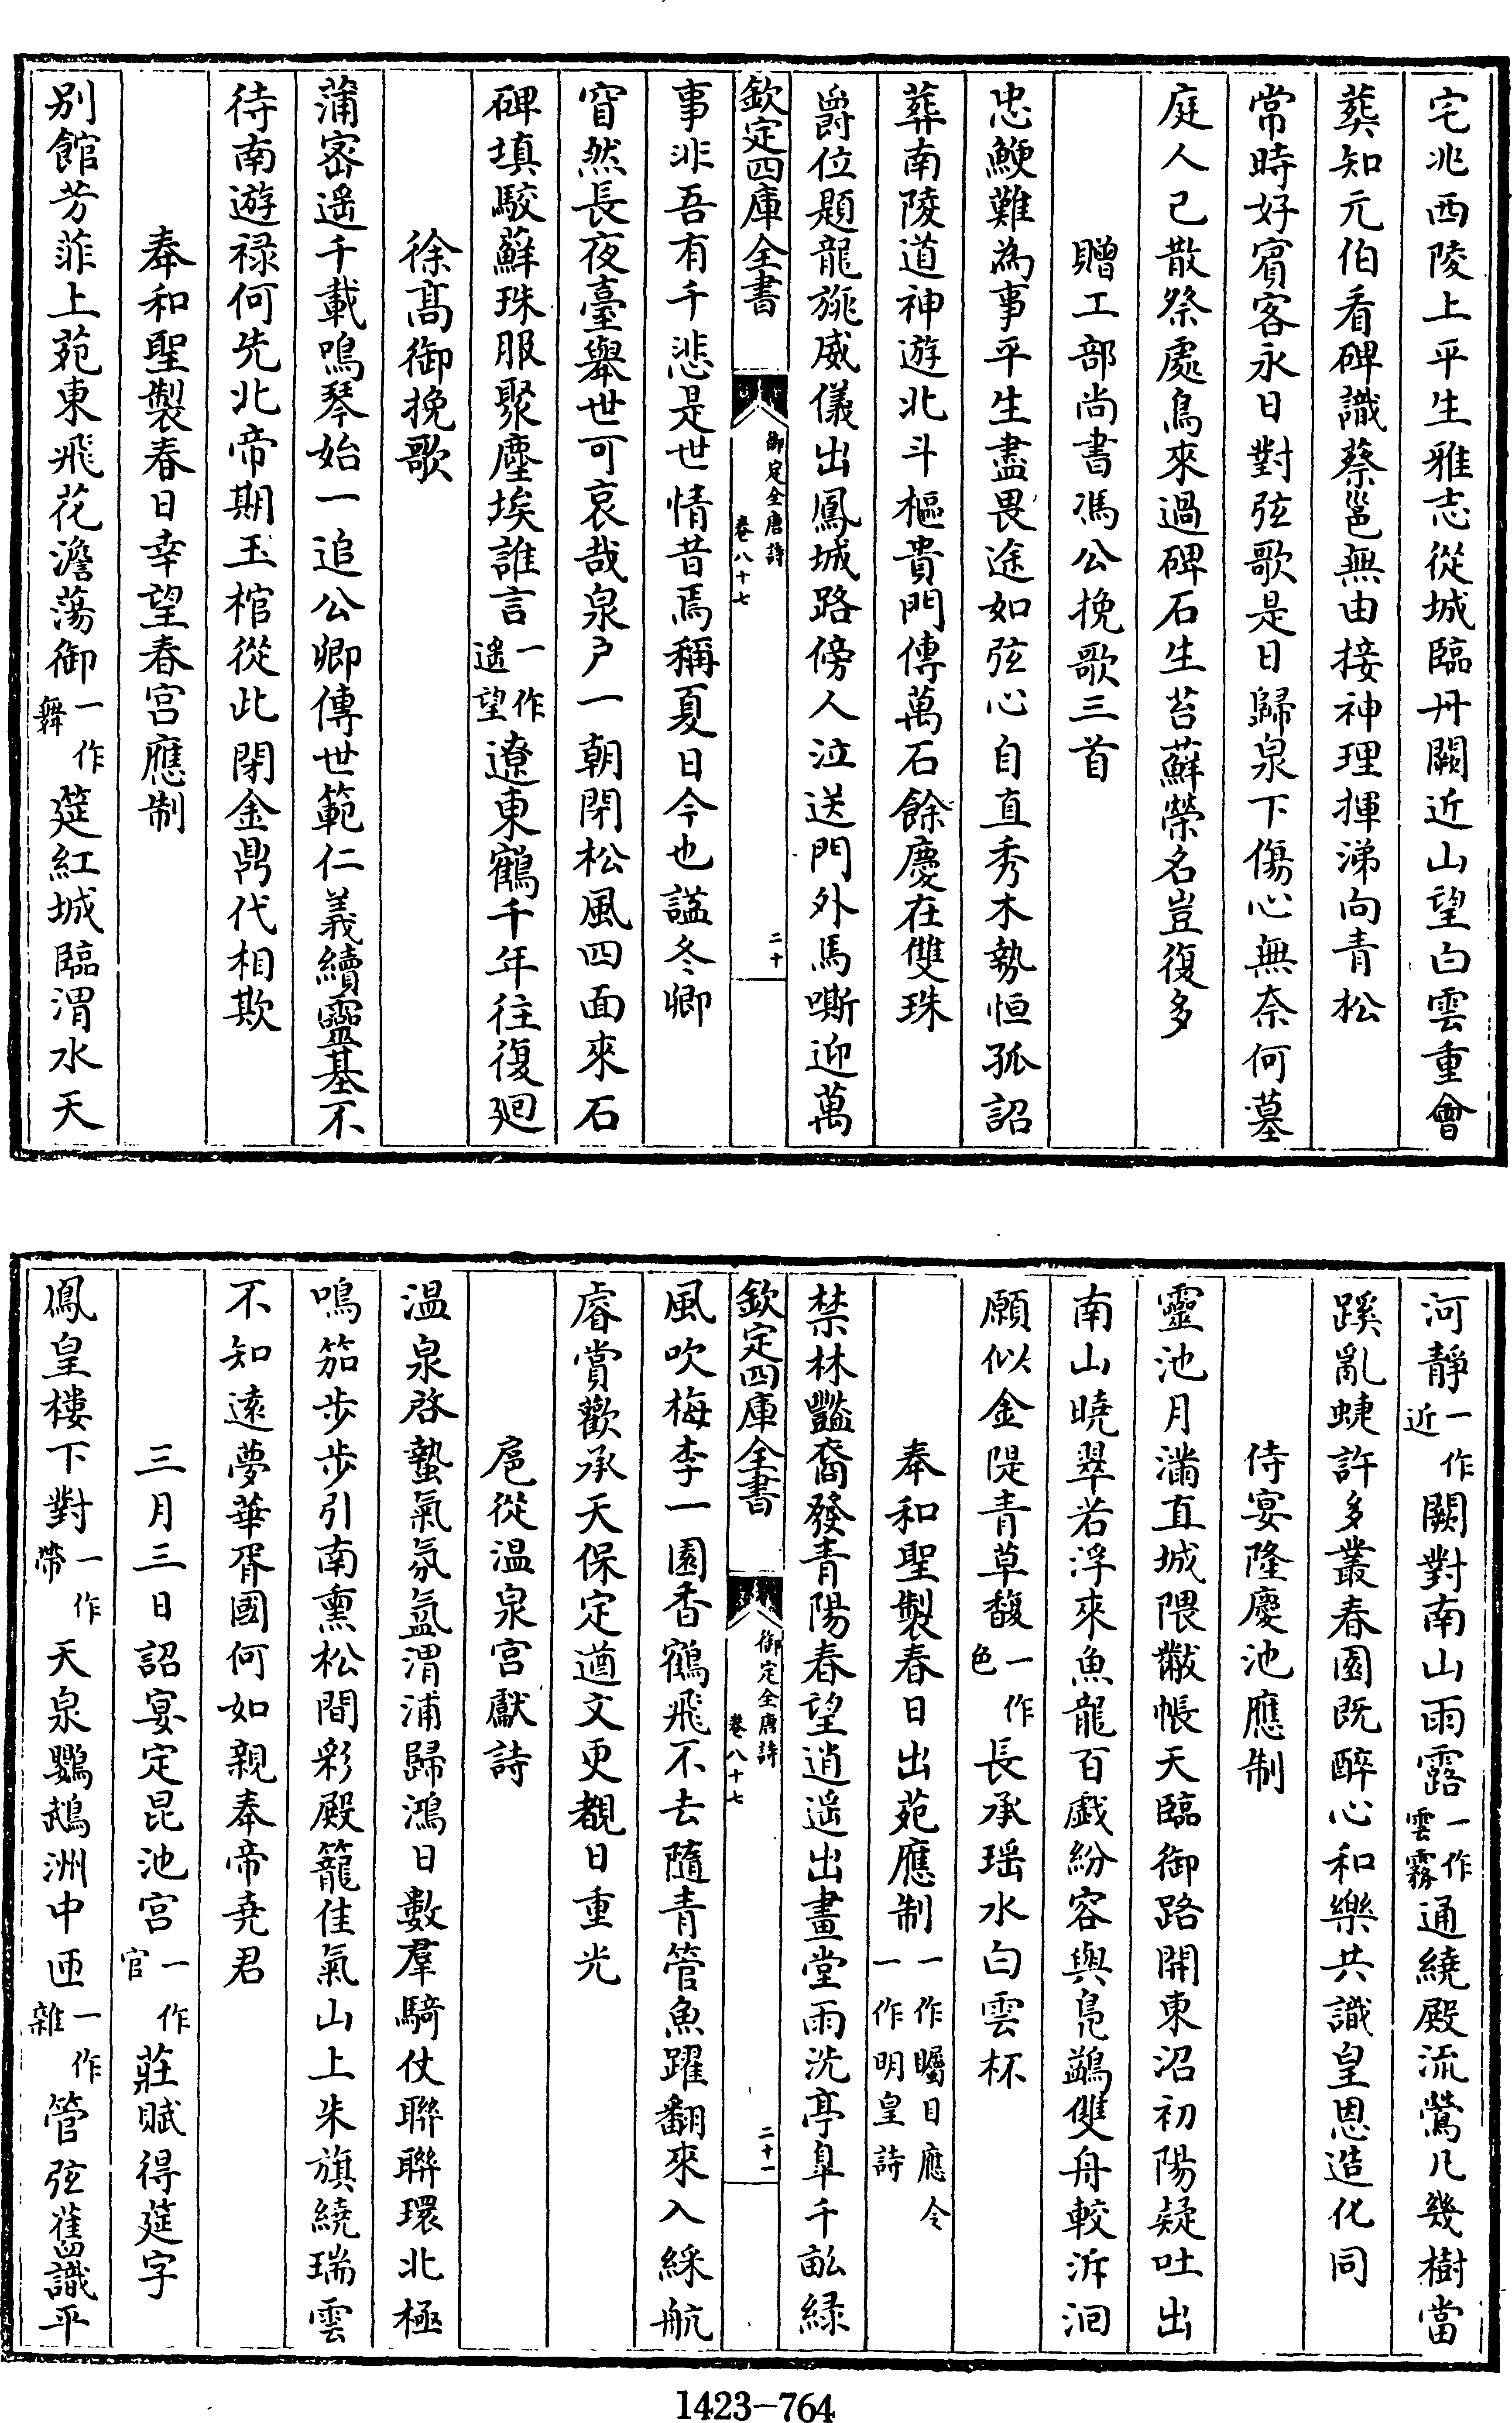 宅兆西陵上平生雅志從城臨丹闕近山望白雲重會
葬知元伯看碑識蔡邕無由接神理揮涕向青松
常時好賓客永日對弦歌是日歸泉下傷心無奈何墓
庭人已散祭處鳥來過碑石生苔蘚榮名豈復多
贈工部尚書馮公挽歌三首
忠鯁難為事平生盡畏途如弦心自直秀木勢恒孤詔
葬南陵道神遊北斗樞貴門傳萬石餘慶在雙珠
爵位題龍旐威儀出鳳城路傍人泣送門外馬嘶迎萬
欽定四庫全書 御定全唐詩 卷八十七 二十
事非吾有千悲是世情昔焉稱夏日今也諡冬卿
窅然長夜臺舉世可哀哉泉户一朝閉松風四面來石
碑填駮蘚珠服聚塵埃誰言一作遥望遼東鶴千年往復迴
徐高御挽歌
蒲密遥千載鳴琴始一追公卿傳世範仁義續靈基不
待南遊禄何先北帝期玉棺從此閉金鼎代相欺
奉和聖製春日幸望春宫應制
别館芳菲上苑東飛花澹蕩御一作舞筵紅城臨渭水天
河靜一作近闕對南山雨露一作雲霧通繞殿流鶯凡幾樹當
蹊亂蜨許多叢春園既醉心和樂共識皇恩造化同
侍宴隆慶池應制
靈池月滿直城隈黻帳天臨御路開東沼初陽疑吐出
南山曉翠若浮來魚龍百戲紛容與鳧鷁雙舟較泝洄
願似金隄青草馥一作色長承瑶水白雲杯
奉和聖製春日出苑應制一作矚目應令一作明皇詩
禁林豔裔發青陽春望逍遥出畫堂雨洗亭臯千畝緑
欽定四庫全書 御定全唐詩 卷八十七 二十一
風吹梅李一園香鶴飛不去隨青管魚躍翻來入綵航
睿賞歡承天保定遒文更覩日重光
扈從温泉宫獻詩
温泉啓蟄氣氛氲渭浦歸鴻日數羣騎仗聯聯環北極
鳴笳步步引南熏松間彩殿籠佳氣山上朱旗繞瑞雲
不知遠夢華胥國何如親奉帝堯君
三月三日詔宴定昆池宫一作官莊賦得筵字
鳳皇樓下對一作帶天泉鸚鵡洲中匝一作雜管弦舊識平
1423-764